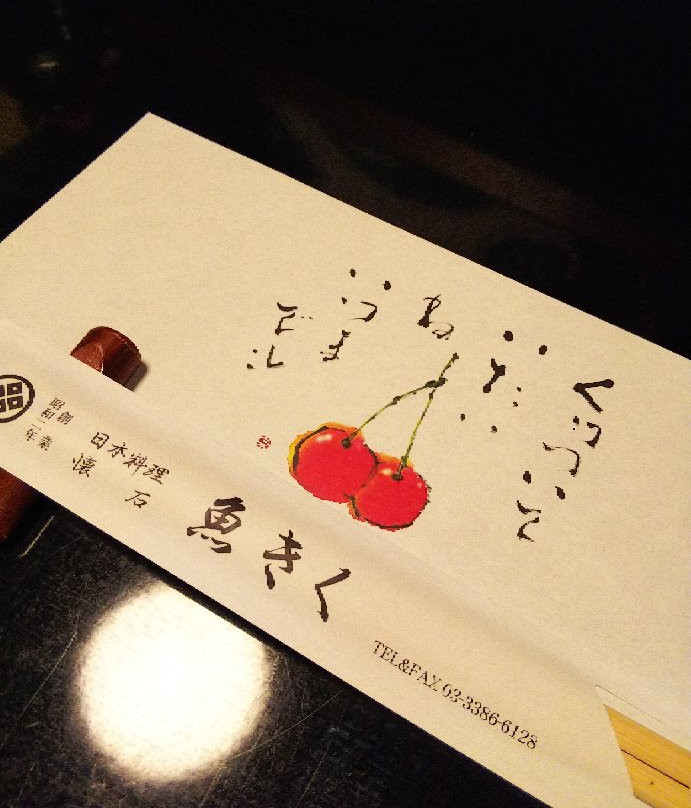 くっついて
いたい
ね
いつま
でも
創業
昭和二年
日本料理
懐石
魚きく
TEL&FAX 03-3386-6128